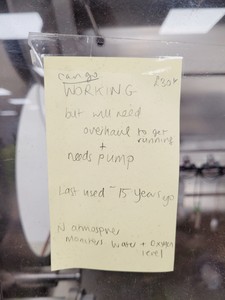 can go
WORKING
but will need
overhaul to get
running
+
needs pump
Last used ~15 years go
N atmosphere
monitors water + oxygen
level